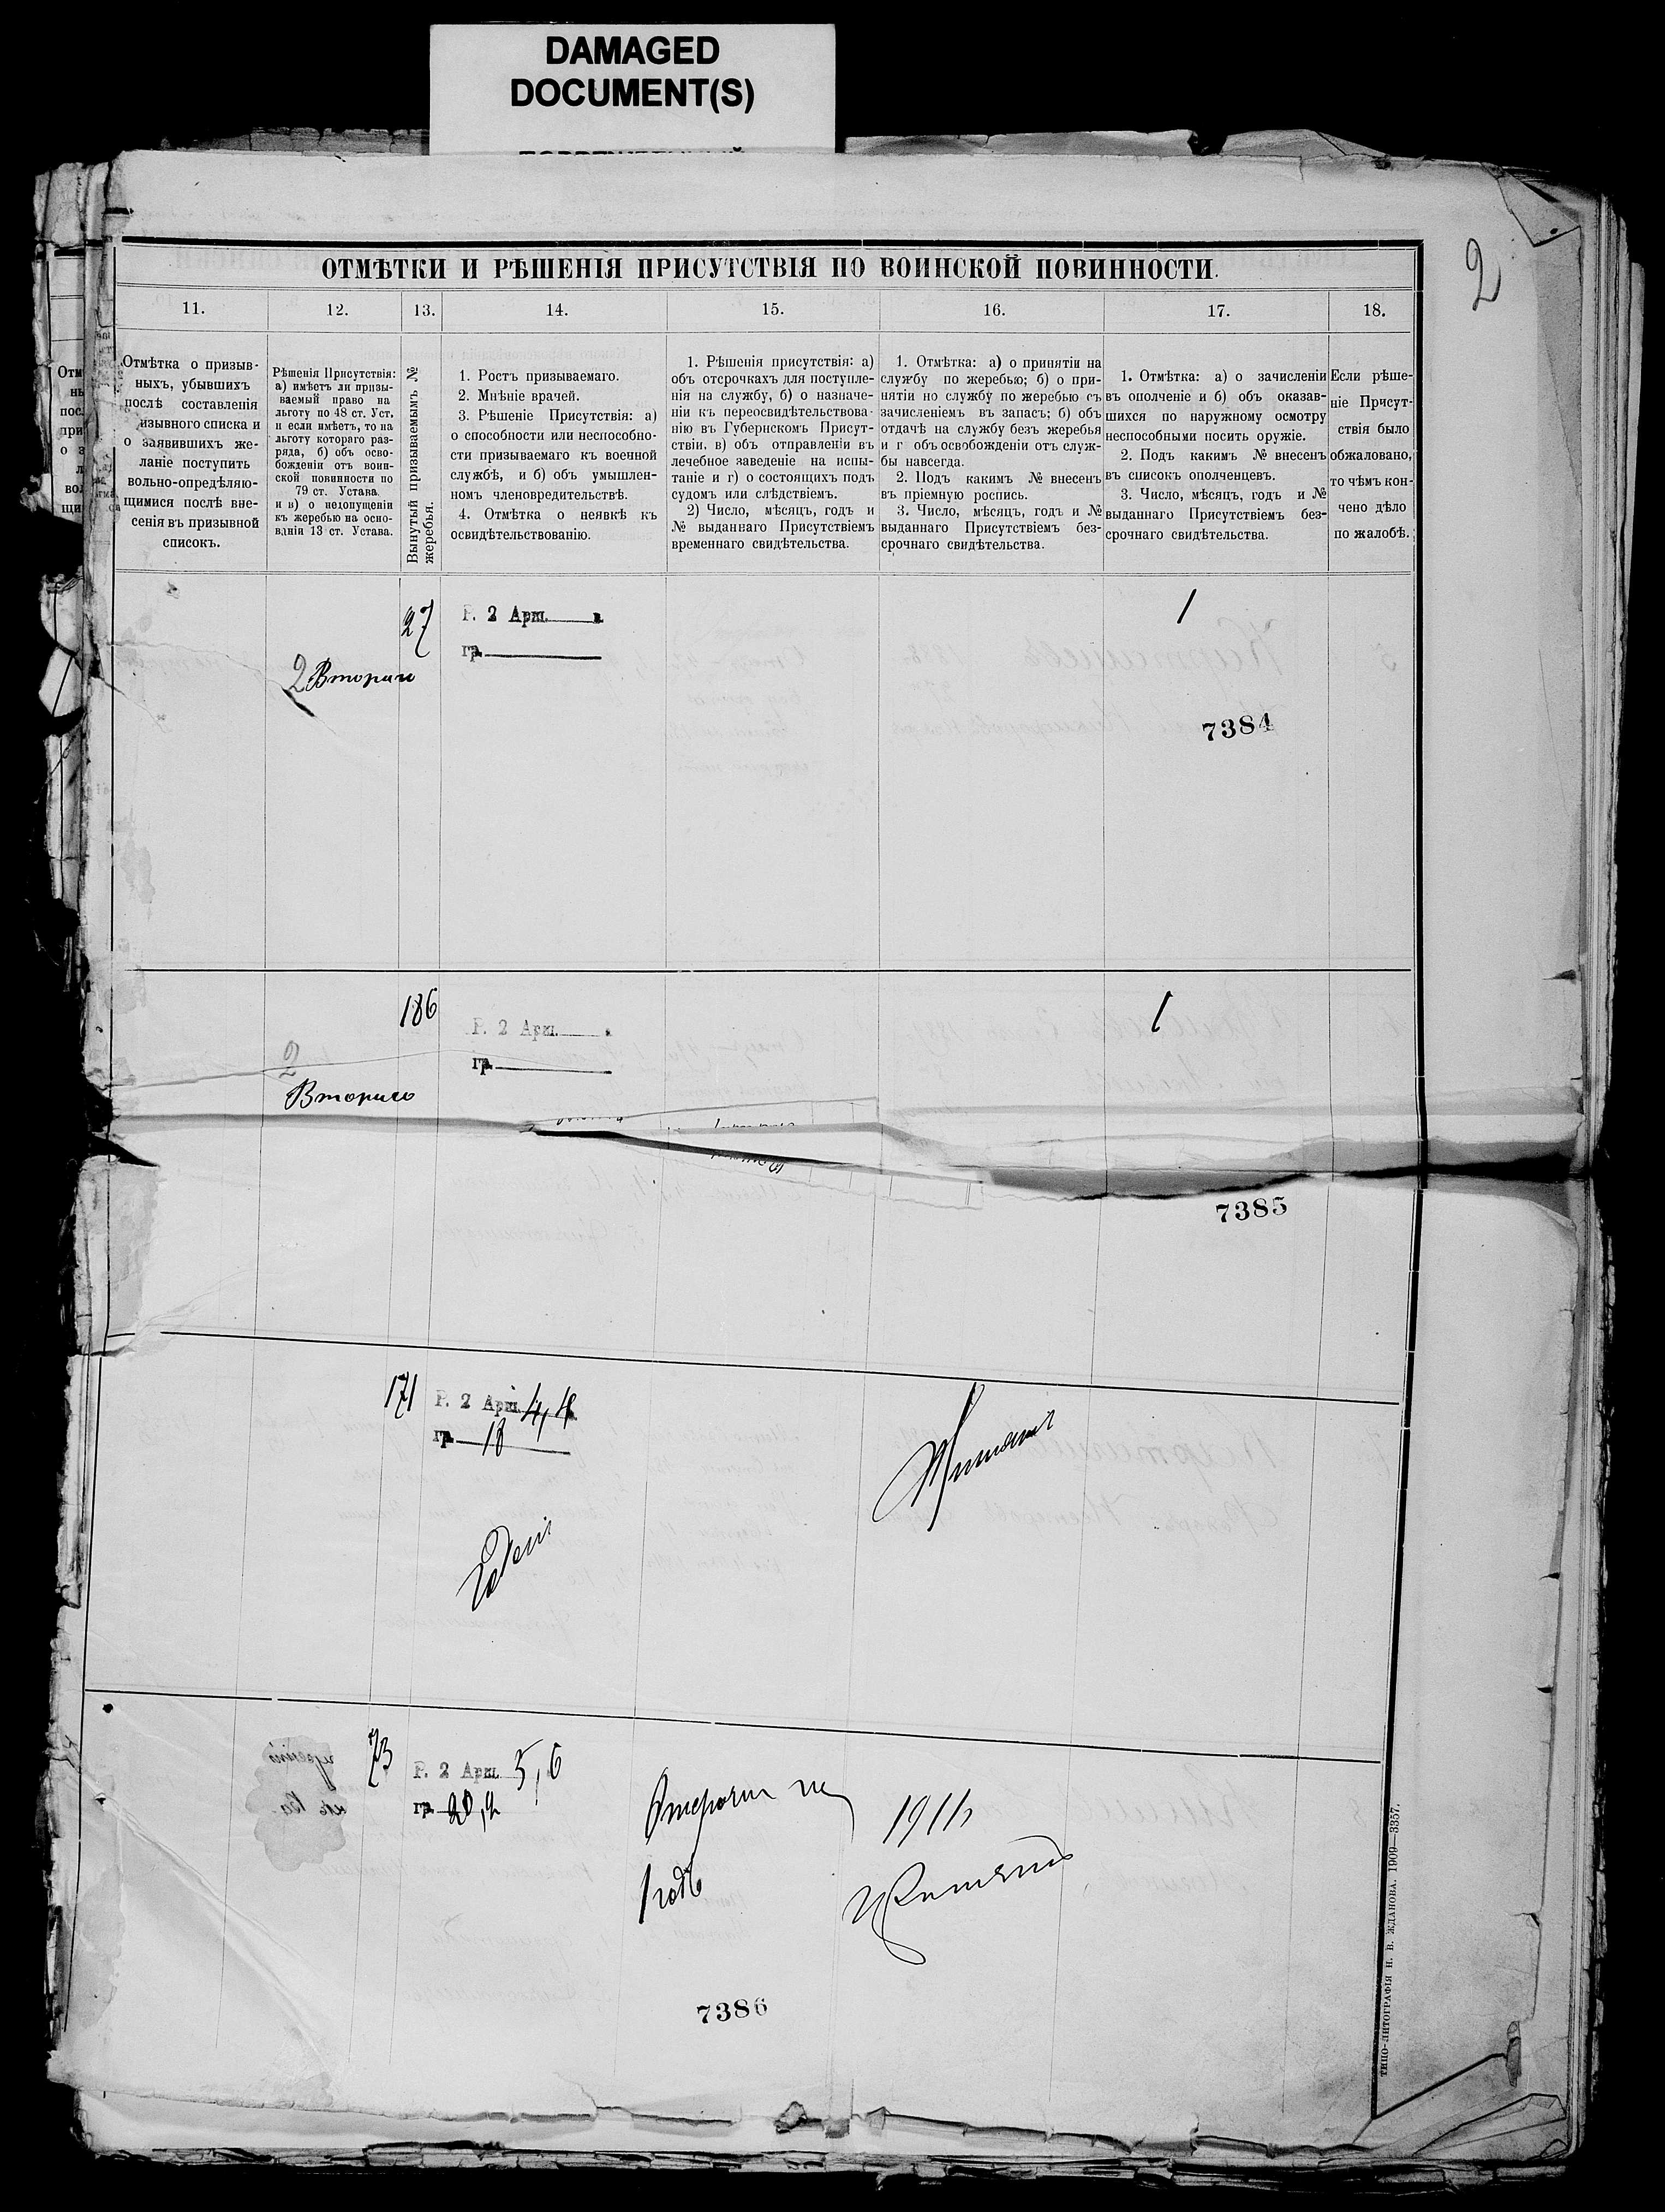 DAMAGED
DOCUMENT(S)
2
ОТМѢТКИ И РѢШЕНІЯ ПРИСУТСТВІЯ ПО ВОИНСКОЙ ПОВИННОСТИ.
11.
12.
13.
14.
15.
16.
17.
18.
Отмѣтка о призыв-
ныхъ, убывшихъ
послѣ составленія
изывного списка и
о заявившихъ же-
ланіе поступить
вольно-опредѣляю-
щимися послѣ вне-
сенія въ призывной
списокъ.
Рѣшенія Присутствія:
а) имѣетъ ли призы-
ваемый право на
льготу по 48 ст. Уст.
и если имѣетъ, то на
льготу котораго раз-
ряда, б) объ осво-
божденіи отъ воин-
ской повинности по
79 ст. Устава
и в) о недопущеніи
къ жеребью на осно-
ваніи 13 ст. Устава.
Вынутый призываемымъ №
жеребья.
1. Ростъ призываемаго.
2. Мнѣніе врачей.
3. Рѣшеніе Присутствія: а)
о способности или неспособно-
сти призываемаго къ военной
службѣ, и б) объ умышлен-
номъ членовредительствѣ.
4. Отмѣтка о неявкѣ къ
освидѣтельствованію.
1. Рѣшенія присутствія: а)
объ отсрочкахъ для поступле-
нія на службу, б) о назначе-
ніи къ переосвидѣтельствова-
нію въ Губернскомъ Присут-
ствіи. в) объ отправленіи въ
лечебное заведеніе на испы-
таніе и г) о состоящихъ подъ
судомъ или слѣдствіемъ.
2) Число, мѣсяцъ, годъ и
№ выданнаго Присутствіемъ
временнаго свидѣтельства.
1. Отмѣтка: а) о принятіи на
службу по жеребью; б) о при-
нятіи по службу по жеребью съ
зачисленіемъ въ запасъ; б) объ
отдачѣ на службу безъ жеребья
и г объ освобожденіи отъ служ-
бы навсегда.
2. Подъ какимъ № внесенъ
въ пріемную роспись.
3. Число, мѣсяцъ, годъ и №
выданнаго Присутствіемъ без-
срочнаго свидѣтельства.
1. Отмѣтка: а) о зачисленіи
въ ополченіе и б) объ оказав-
шихся по наружному осмотру
неспособными носить оружіе.
2. Подъ какимъ № внесенъ
въ списокъ ополченцевъ.
3. Число, мѣсяцъ, годъ и №
выданнаго Присутствіемъ без-
срочнаго свидѣтельства.
Если рѣше-
ніе Присут-
ствія было
обжаловано,
то чѣмъ кон-
чено дѣло
по жалобѣ.
27
Р. 2 Арш. в.
гр.
1
2 Вторым
7384
186
Р. 2 Арш.
гр.
1
2
Вторыго
7385
171
Р. 2 Арш. 4,4 в.
гр. 18
Годенъ
Принятъ
73
Р. 2 Арш. 5,6
гр. 20,2
Отсрочи на
1 годъ
1911
Принятъ
7386
ТИПО-ЛИТОГРАФІЯ Н. В. ЖДАНОВА. 1909—3357.